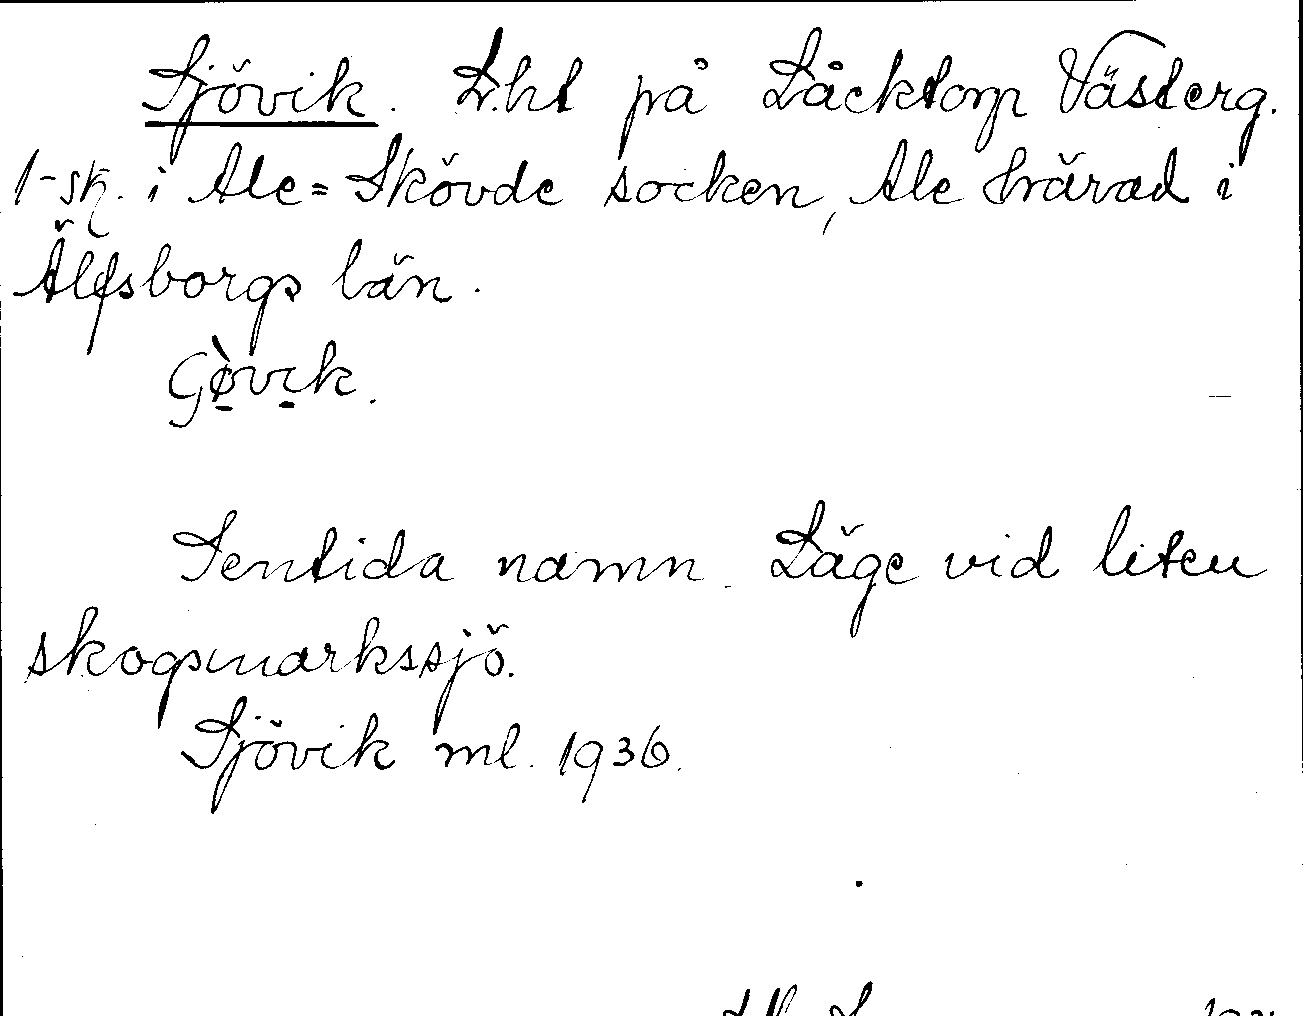 Sjövik. L.ht på Låcktorp Västerg.
1-sk. i Ale=Skövde socken, Ale härad i
Älfsborgs län.
Gø̀vik.
Sentida namn. Läge vid liten
skogsmarkssjö.
Sjövik ml. 1936.